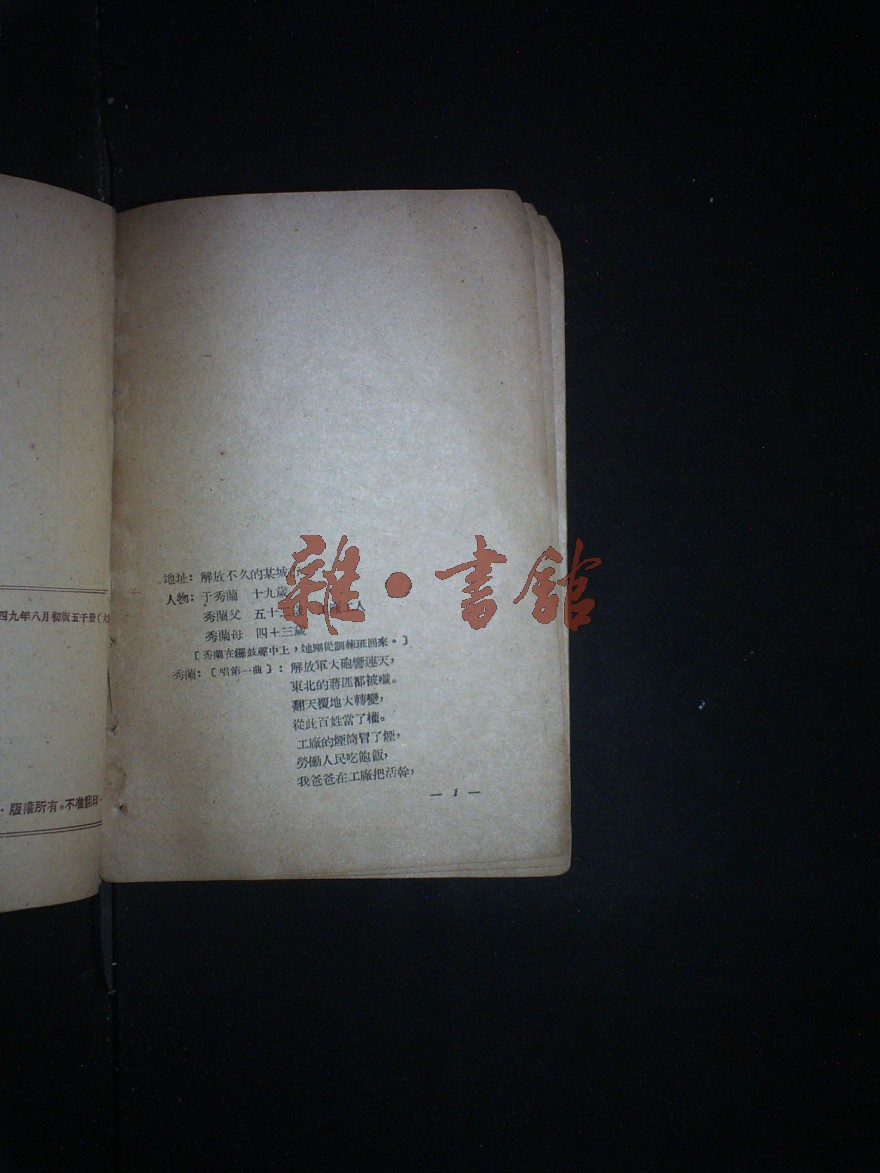 四九年八月初版五千册(大
·版權所有·不准翻印·
地址：解放不久的某城市
人物：于秀蘭　十九歲
秀蘭父　五十二歲　工廠工人
秀蘭母　四十三歲
〔秀蘭在鑼鼓聲中上，她剛從訓練班回來。〕
秀蘭：〔唱第一曲〕：解放軍大砲響連天，
東北的蔣匪都被殲。
翻天覆地大轉變，
從此百姓當了權。
工廠的煙筒冒了煙，
勞働人民吃飽飯，
我爸爸在工廠把活幹，
— 1 —
雜·書館